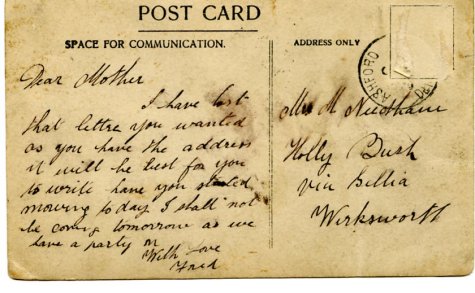 POST CARD
SPACE FOR COMMUNICATION.
ADDRESS ONLY
Dear Mother
I have lost
that letter you wanted
as you have the address
it will be best for you
to write have you started
mowing to day I shall not
be coming tomorrow as we
have a party on
With Love
Fred
ASHFORD
Mrs M Needham
Holly Bush
via Gellia
Wirksworth